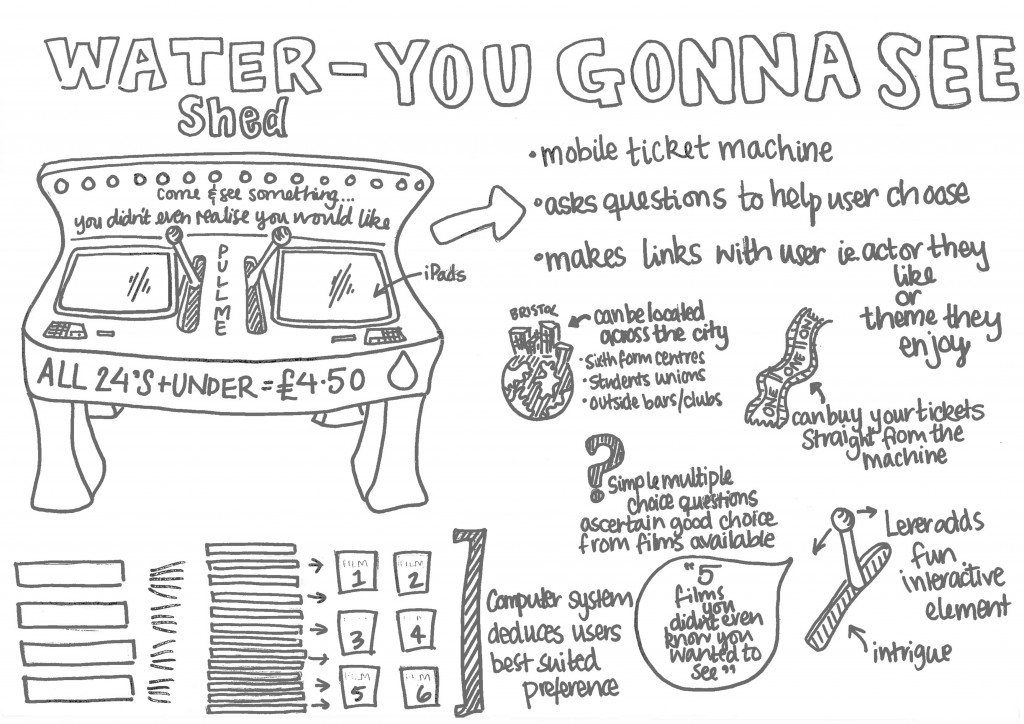 WATER-YOU GONNA SEE
Shed
come & see something...
you didn't even realise you would like
PULL ME
iPads
ALL 24'S + UNDER = £4.50
•mobile ticket machine
•asks questions to help user choose
•makes links with user i.e. actor they
like
or
theme they
enjoy
BRISTOL
can be located
across the city
•Sixth form centres
•Students unions
•outside bars/clubs
ONE
ONE
ONE
can buy your tickets
straight from the
machine
?
Simple multiple
choice questions
ascertain good choice
from films available
Lever adds
fun
interactive
element
intrigue
FILM
1
FILM
2
3
4
FILM
5
FILM
6
Computer system
deduces users
best suited
preference
"5
films
you
didn't even
know you
wanted to
see"